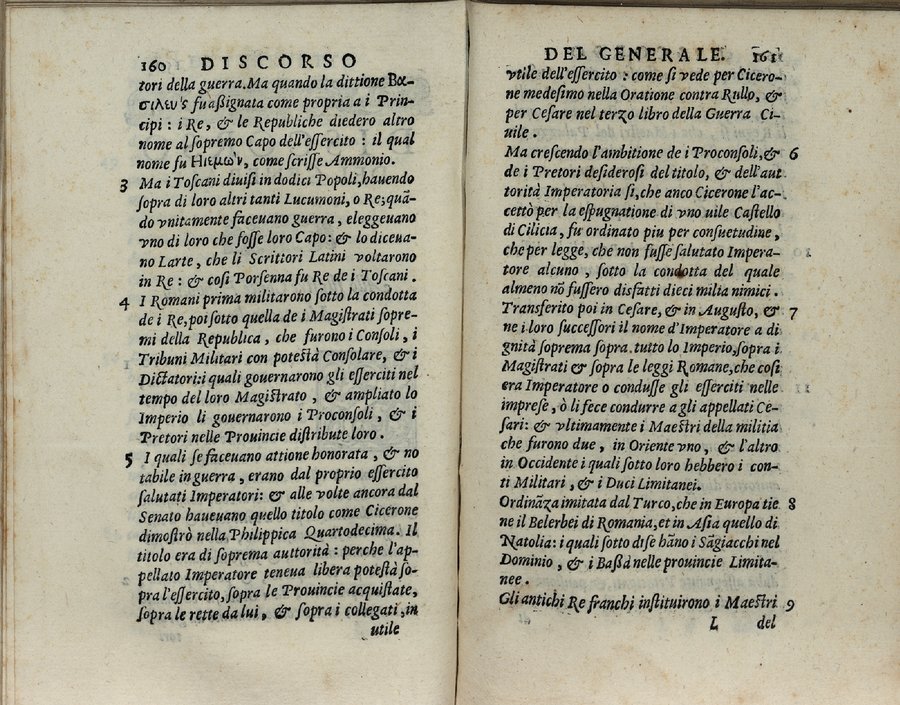 160 DISCORSO
tori della guerra. Ma quando la dittione Βα-
σιλευ's fu aßignata come propria a i Prin-
cipi : i Re, & le Republiche diedero altro
nome al sopremo Capo dell'essercito : il qual
nome fu Ηιεμων, come scrisse Ammonio.
3 Ma i Toscani diuisi in dodici Popoli, hauendo
sopra di loro altri tanti Lucumoni, o Re; quã-
do vnitamente faceuano guerra, eleggeuano
vno di loro che fosse loro Capo: & lo diceua-
no Larte, che li Scrittori Latini voltarono
in Re : & cosi Porsenna fu Re de i Toscani.
4 I Romani prima militarono sotto la condotta
de i Re, poi sotto quella de i Magistrati sopre-
mi della Republica, che furono i Consoli, i
Tribuni Militari con potestà Consolare, & i
Dictatori: i quali gouernarono gli esserciti nel
tempo del loro Magistrato, & ampliato lo
Imperio li gouernarono i Proconsoli, & i
Pretori nelle Prouincie distribute loro.
5 I quali se faceuano attione honorata, & no
tabile in guerra, erano dal proprio essercito
salutati Imperatori: & alle volte ancora dal
Senato haueuano quello titolo come Cicerone
dimostrò nella Philippica Quartodecima. Il
titolo era di soprema auttorità : perche l'ap-
pellato Imperatore teneua libera potestà so-
pra l'essercito, sopra le Prouincie acquistate,
sopra le rette da lui, & sopra i collegati, in
utile
DEL GENERALE. 161
vtile dell'essercito : come si vede per Cicero-
ne medesimo nella Oratione contra Rullo, &
per Cesare nel terzo libro della Guerra Ci-
uile.
Ma crescendo l'ambitione de i Proconsoli, & 6
de i Pretori desiderosi del titolo, & dell'aut
torità Imperatoria si, che anco Cicerone l'ac-
cettò per la espugnatione di vno uile Castello
di Cilicia, fu ordinato piu per consuetudine,
che per legge, che non fusse salutato Impera-
tore alcuno, sotto la condotta del quale
almeno nõ fussero disfatti dieci milia nimici.
Transferito poi in Cesare, & in Augusto, & 7
ne i loro successori il nome d'Imperatore a di
gnità soprema sopra tutto lo Imperio, sopra i
Magistrati & sopra le leggi Romane, che cosi
era Imperatore o condusse gli esserciti nelle
imprese, ò li fece condurre a gli appellati Ce-
sari: & vltimamente i Maestri della militia
che furono due, in Oriente vno, & l'altro
in Occidente i quali sotto loro hebbero i con-
ti Militari, & i Duci Limitanei.
Ordinãza imitata dal Turco, che in Europa tie 8
ne il Belerbei di Romania, et in Asia quello di
Natolia: i quali sotto di se hãno i Sãgiacchi nel
Dominio, & i Bassà nelle prouincie Limita-
nee.
Gli antichi Re franchi instituirono i Maestri 9
L del